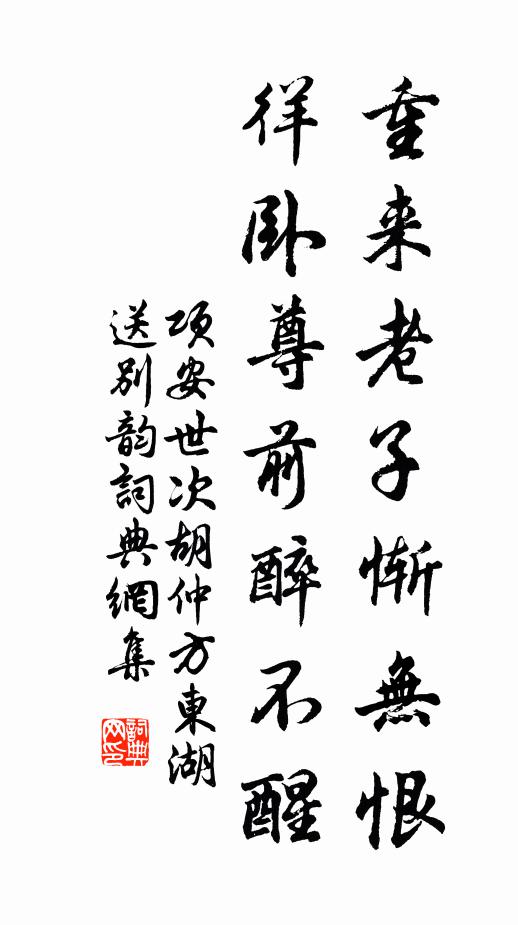 重来老子慚無恨
徉卧尊前醉不醒
項安世次胡仲方東湖
送别韵詞典網集
詞典網印